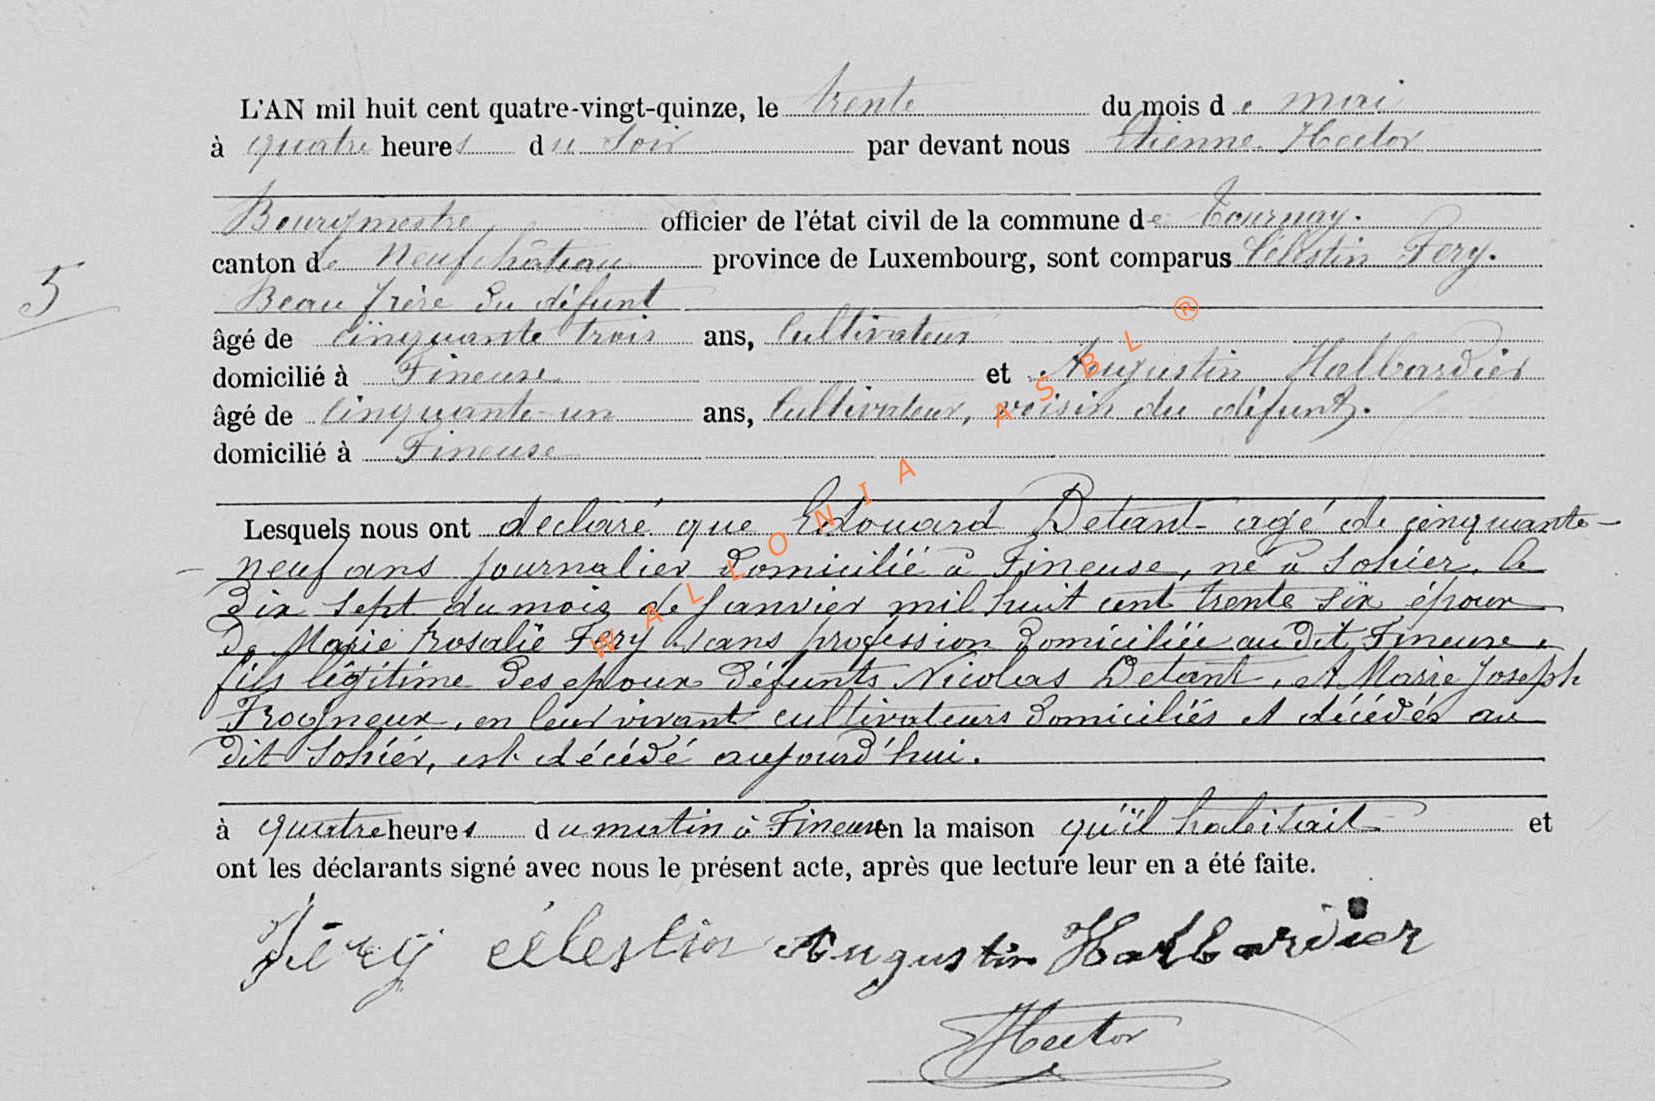 L'AN mil huit cent quatre-vingt-quinze, le trente du mois de mai
à quatre heures du soir par devant nous Etienne Hector
Bourgmestre officier de l'état civil de la commune de Tournay.
canton de Neufchâteau province de Luxembourg, sont comparus Célestin Fery.
5
Beau frère du défunt
âgé de cinquante trois ans, Cultivateur
domicilié à Fineuse et Augustin Halbardier
âgé de cinquante-un ans, Cultivateur, voisin du défunt.
domicilié à Fineuse
Lesquels nous ont declaré que Edouard Detant agé de cinquante-
neuf ans journalier domicilié à Fineuse, né à Sohier, le
dix sept du mois de Janvier mil huit cent trente six époux
de Marie Rosalie Fery sans profession domiciliée au dit Fineuse,
fils légitime des epoux défunts Nicolas Detant, et Marie Joseph
Frogneux, en leur vivant cultivateurs domiciliés et décédés au
dit Sohier, est décédé aujourd'hui.
à quatre heures du matin à Fineuse en la maison qu'il habitait et
ont les déclarants signé avec nous le présent acte, après que lecture leur en a été faite.
Féry célestin Augustin Halbardier
Hector
WALLONIA ASBL ®